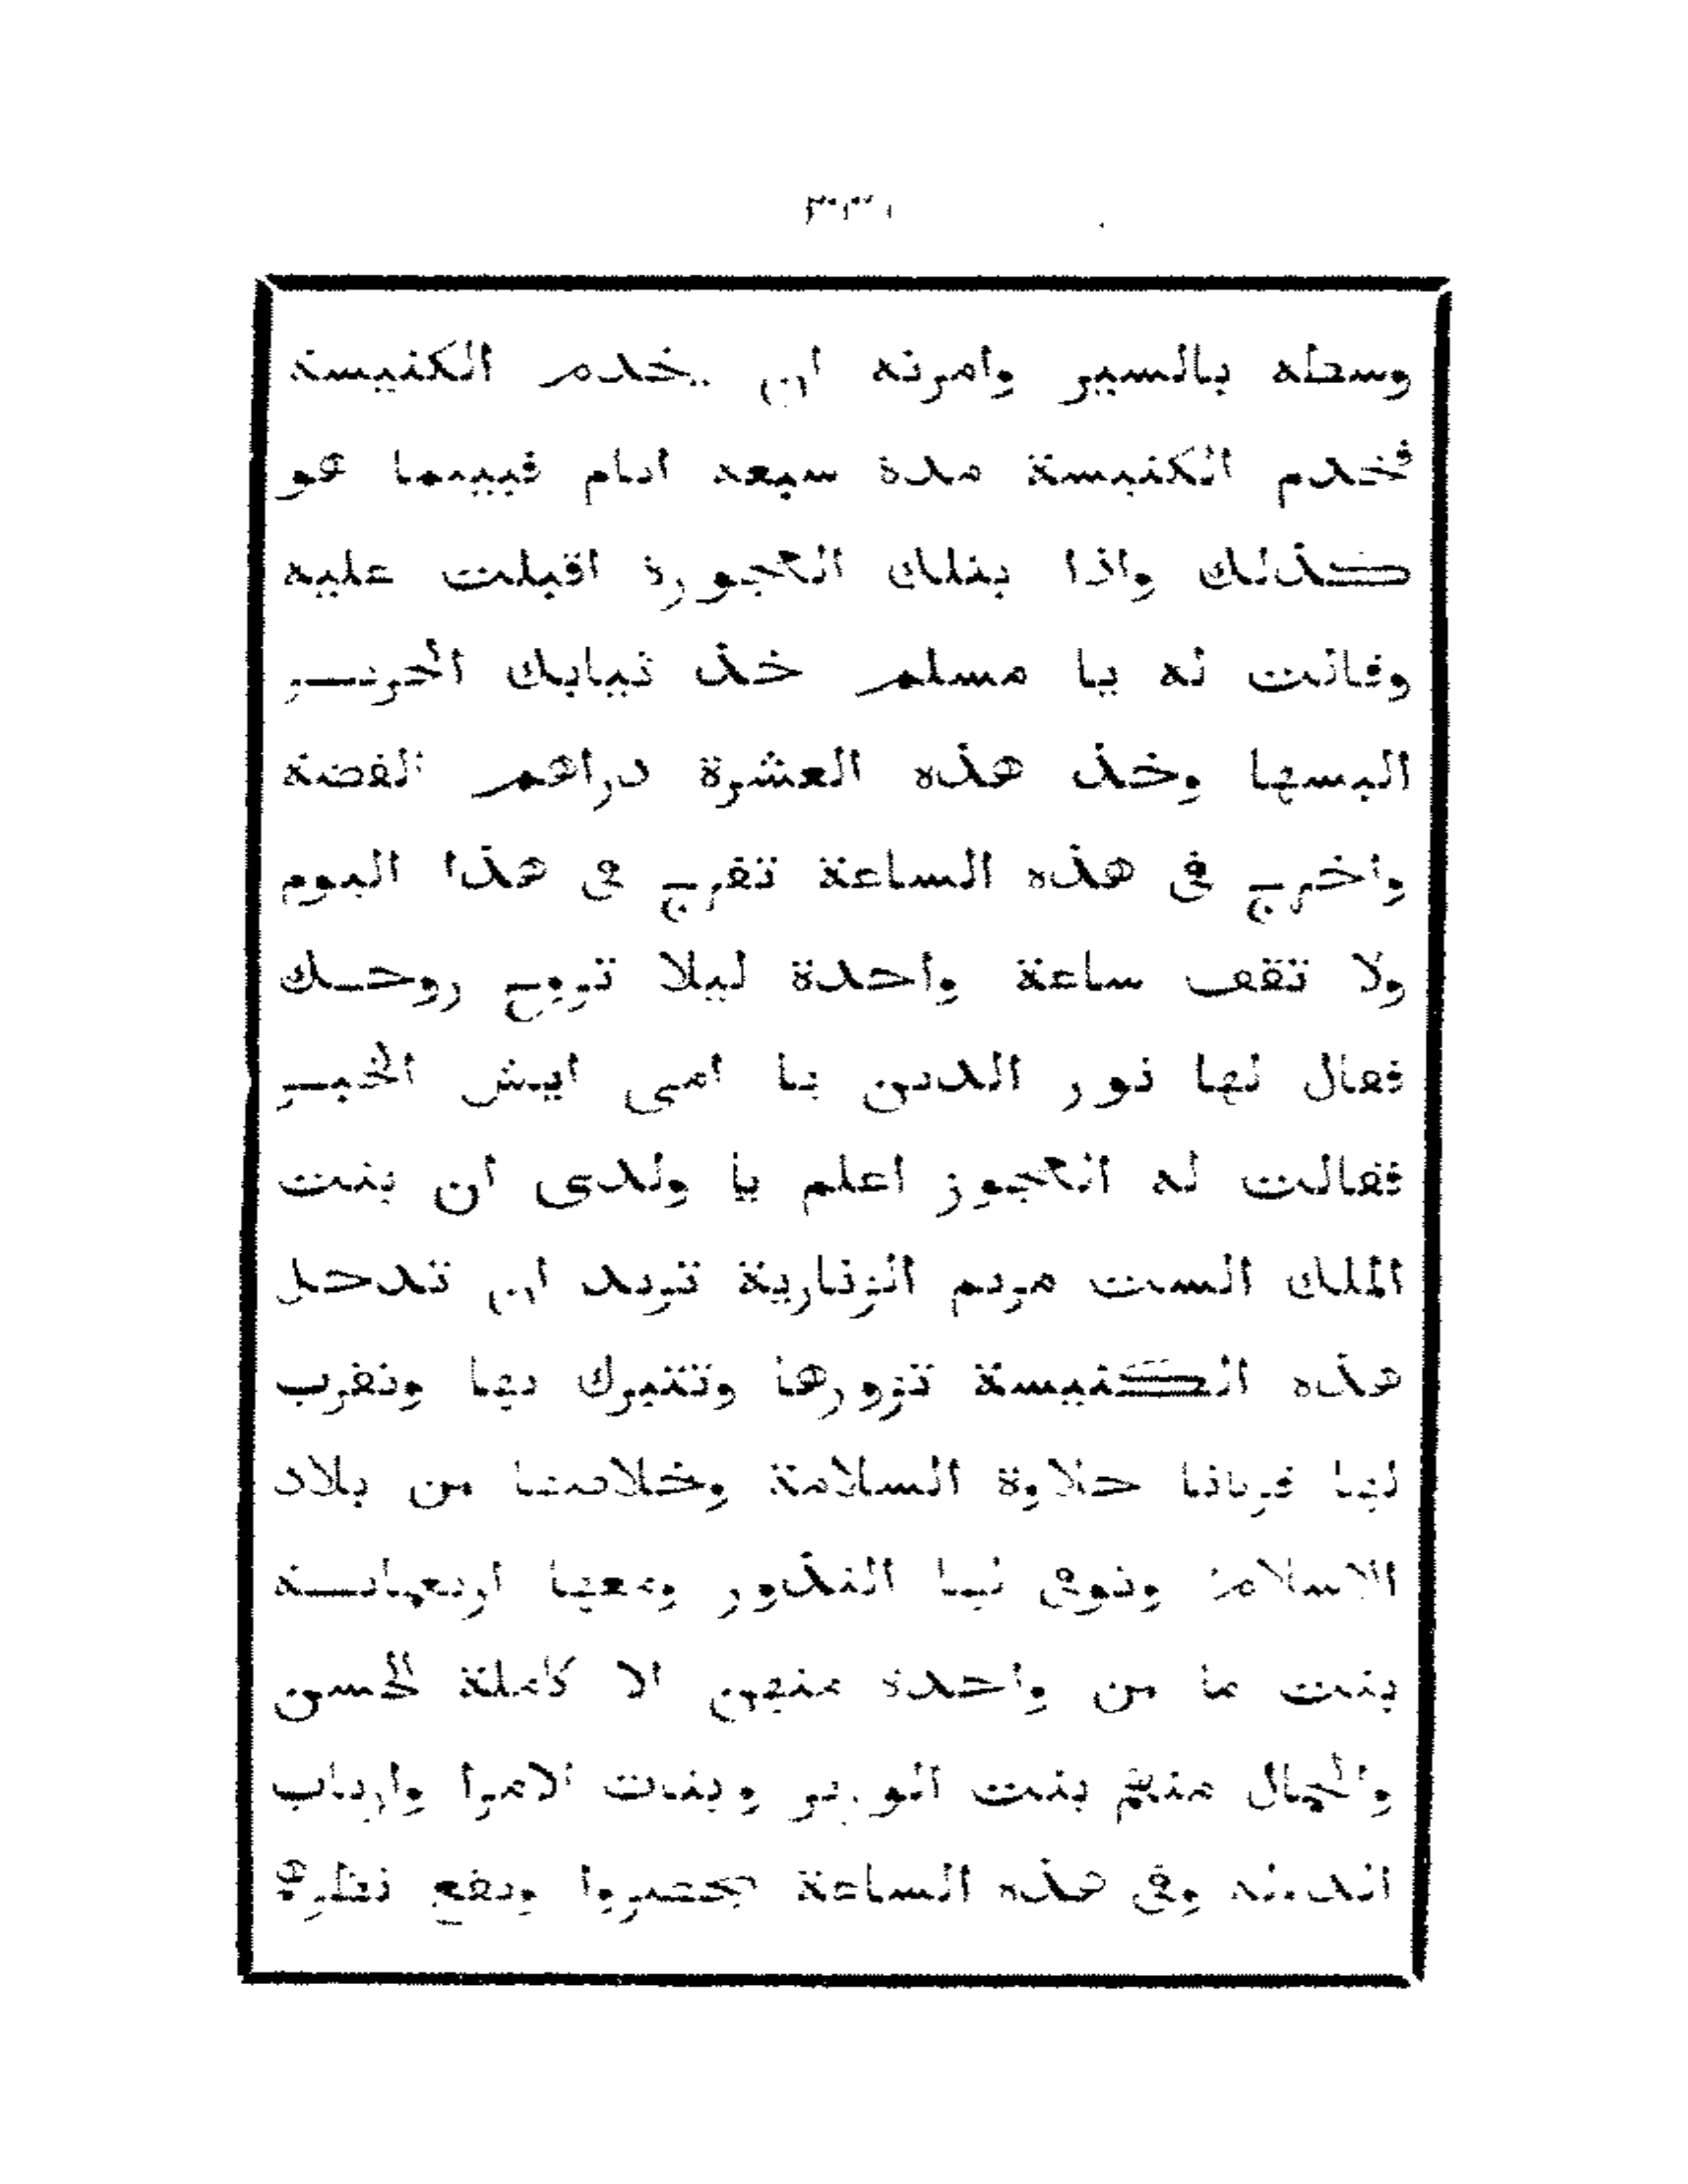 وسطه بالسير وامرته ان يخدم الكنيسة
فخدم الكنيسة مدة سبعة ايام فبينما هو
كذلك واذا بتلك العجوزة اقبلت عليه
وقالت له يا مسلم خذ ثيابك الحرير
البسها وخذ هذه العشرة دراهم الفضة
واخرج فى هذه الساعة تفرج فى هذا اليوم
ولا تقف ساعة واحدة ليلا تروح روحك
فقال لها نور الدين يا امى ايش الخبر
فقالت له العجوز اعلم يا ولدى ان بنت
الملك الست مريم الزنارية تريد ان تدخل
هذه الكنيسة تزورها وتتبرك بها وتقرب
لها قربانا حلاوة السلامة وخلاصها من بلاد
الاسلام وتوفى لها النذور ومعها اربعماية
بنت ما من واحدة منهن الا كاملة الحسن
والجمال منهم بنت الوزير وبنات الامرا وارباب
الدولة وفى هذه الساعة يحضروا ويقع نظرهم